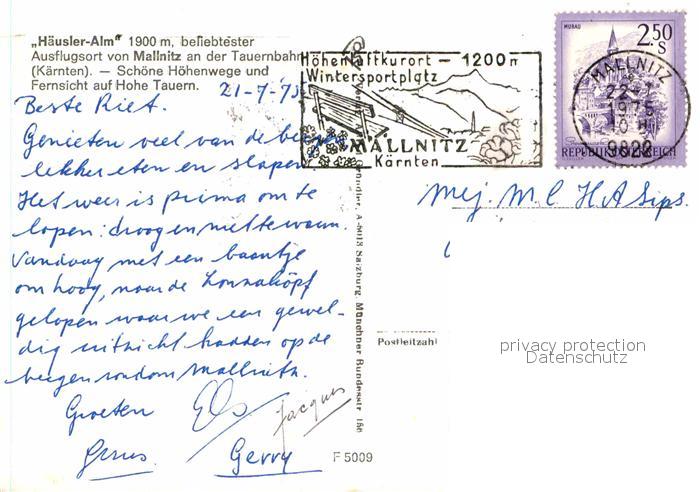 „Häusler-Alm" 1900 m, beliebtester
Ausflugsort von Mallnitz an der Tauernbahn
(Kärnten). — Schöne Höhenwege und
Fernsicht auf Hohe Tauern.
21-7-75
Beste Riet.
Genieten veel van de bergen
lekker eten en slapen
Het weer is prima om te
lopen: droog en niet te warm.
Vandaag met een baantje
om hoog, naar de
gelopen waar we een gewel-
dig uitzicht hadden op de
bergen rondom Mallnitz.
Groeten Els Jacques
Gerry
F 5009
A-5013 Salzburg, Münchner Bundesstr.
Höhenluftkurort — 1200 m
Wintersportplatz
MALLNITZ
Kärnten
MURAU
2.50
S
REPUBLIK ÖSTERREICH
MALLNITZ
1975
9822
Mej. M. C. H. A. Sips.
Postleitzahl
privacy protection
Datenschutz